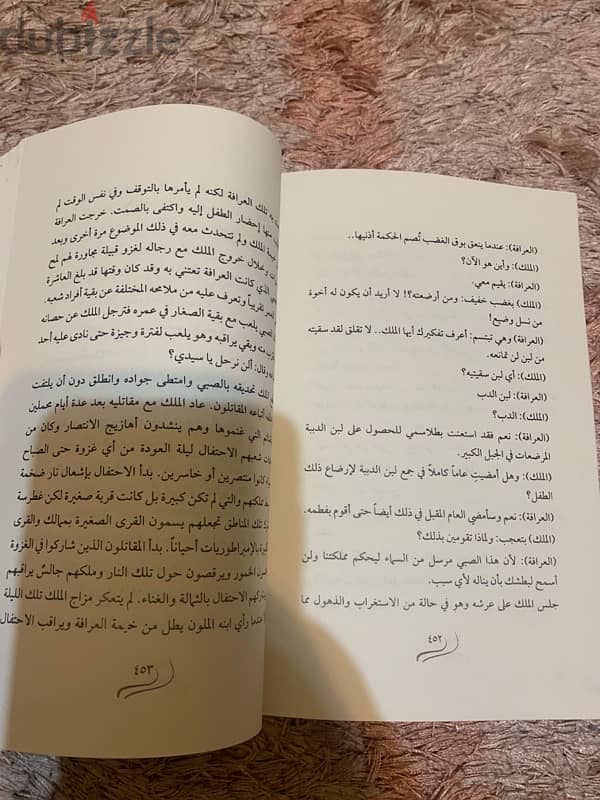 dubizzle
(العرافة): عندما ينعق بوق الغضب تُصم الحكمة أذنيها..
(الملك): وأين هو الآن؟
(العرافة): يقيم معي.
(الملك) بغضب خفيف: ومن أرضعته؟! لا أريد أن يكون له أخوة
من نسل وضيع!
(العرافة) وهي تبتسم: أعرف تفكيرك أيها الملك.. لا تقلق لقد سقيته
من لبن لن تمانعه.
(الملك): أي لبن سقيتيه؟
(العرافة): لبن الدب
(الملك): الدب؟
(العرافة): نعم فقد استعنت بطلاسمي للحصول على لبن الدببة
المرضعات في الجبل الكبير.
(الملك): وهل أمضيتِ عاماً كاملاً في جمع لبن الدببة لإرضاع ذلك
الطفل؟
(العرافة): نعم وسأمضي العام المقبل في ذلك أيضاً حتى أقوم بفطمه.
(الملك) بتعجب: ولماذا تقومين بذلك؟
(العرافة): لأن هذا الصبي مرسل من السماء ليحكم مملكتنا ولن
أسمح لبطشك بأن يناله لأي سبب.
جلس الملك على عرشه وهو في حالة من الاستغراب والذهول مما
٤٥٢
به تلك العرافة لكنه لم يأمرها بالتوقف وفي نفس الوقت لم
منها إحضار الطفل إليه واكتفى بالصمت. خرجت العرافة
الملك ولم تتحدث معه في ذلك الموضوع مرة أخرى وبعد
وخلال خروج الملك مع رجاله لغزو قبيلة مجاورة لهم لمح
الذي كانت العرافة تعتني به وقد كان وقتها قد بلغ العاشرة
تقريباً وتعرف عليه من ملامحه المختلفة عن بقية أفراد شعبه.
الصبي يلعب مع بقية الصغار في عمره فترجل الملك عن حصانه
منه وبقي يراقبه وهو يلعب لفترة وجيزة حتى نادى عليه أحد
وقال: ألن نرحل يا سيدي؟
الملك تحديقه بالصبي وامتطى جواده وانطلق دون أن يلتفت
أتباعه المقاتلون. عاد الملك مع مقاتليه بعد عدة أيام محملين
التي غنموها وهم ينشدون أهازيج الانتصار وكان من
شعبهم الاحتفال ليلة العودة من أي غزوة حتى الصباح
كانوا منتصرين أو خاسرين. بدأ الاحتفال بإشعال نار ضخمة
مملكتهم والتي لم تكن كبيرة بل كانت قرية صغيرة لكن غطرسة
تلك المناطق تجعلهم يسمون القرى الصغيرة بممالك والقرى
بالإمبراطوريات أحياناً. بدأ المقاتلون الذين شاركوا في الغزوة
الخمور ويرقصون حول تلك النار وملكهم جالسٌ يراقبهم
الاحتفال بالثمالة والغناء. لم يتعكر مزاج الملك تلك الليلة
عندما رأي ابنه الملون يطل من خيمة العرافة ويراقب الاحتفال
٤٥٣